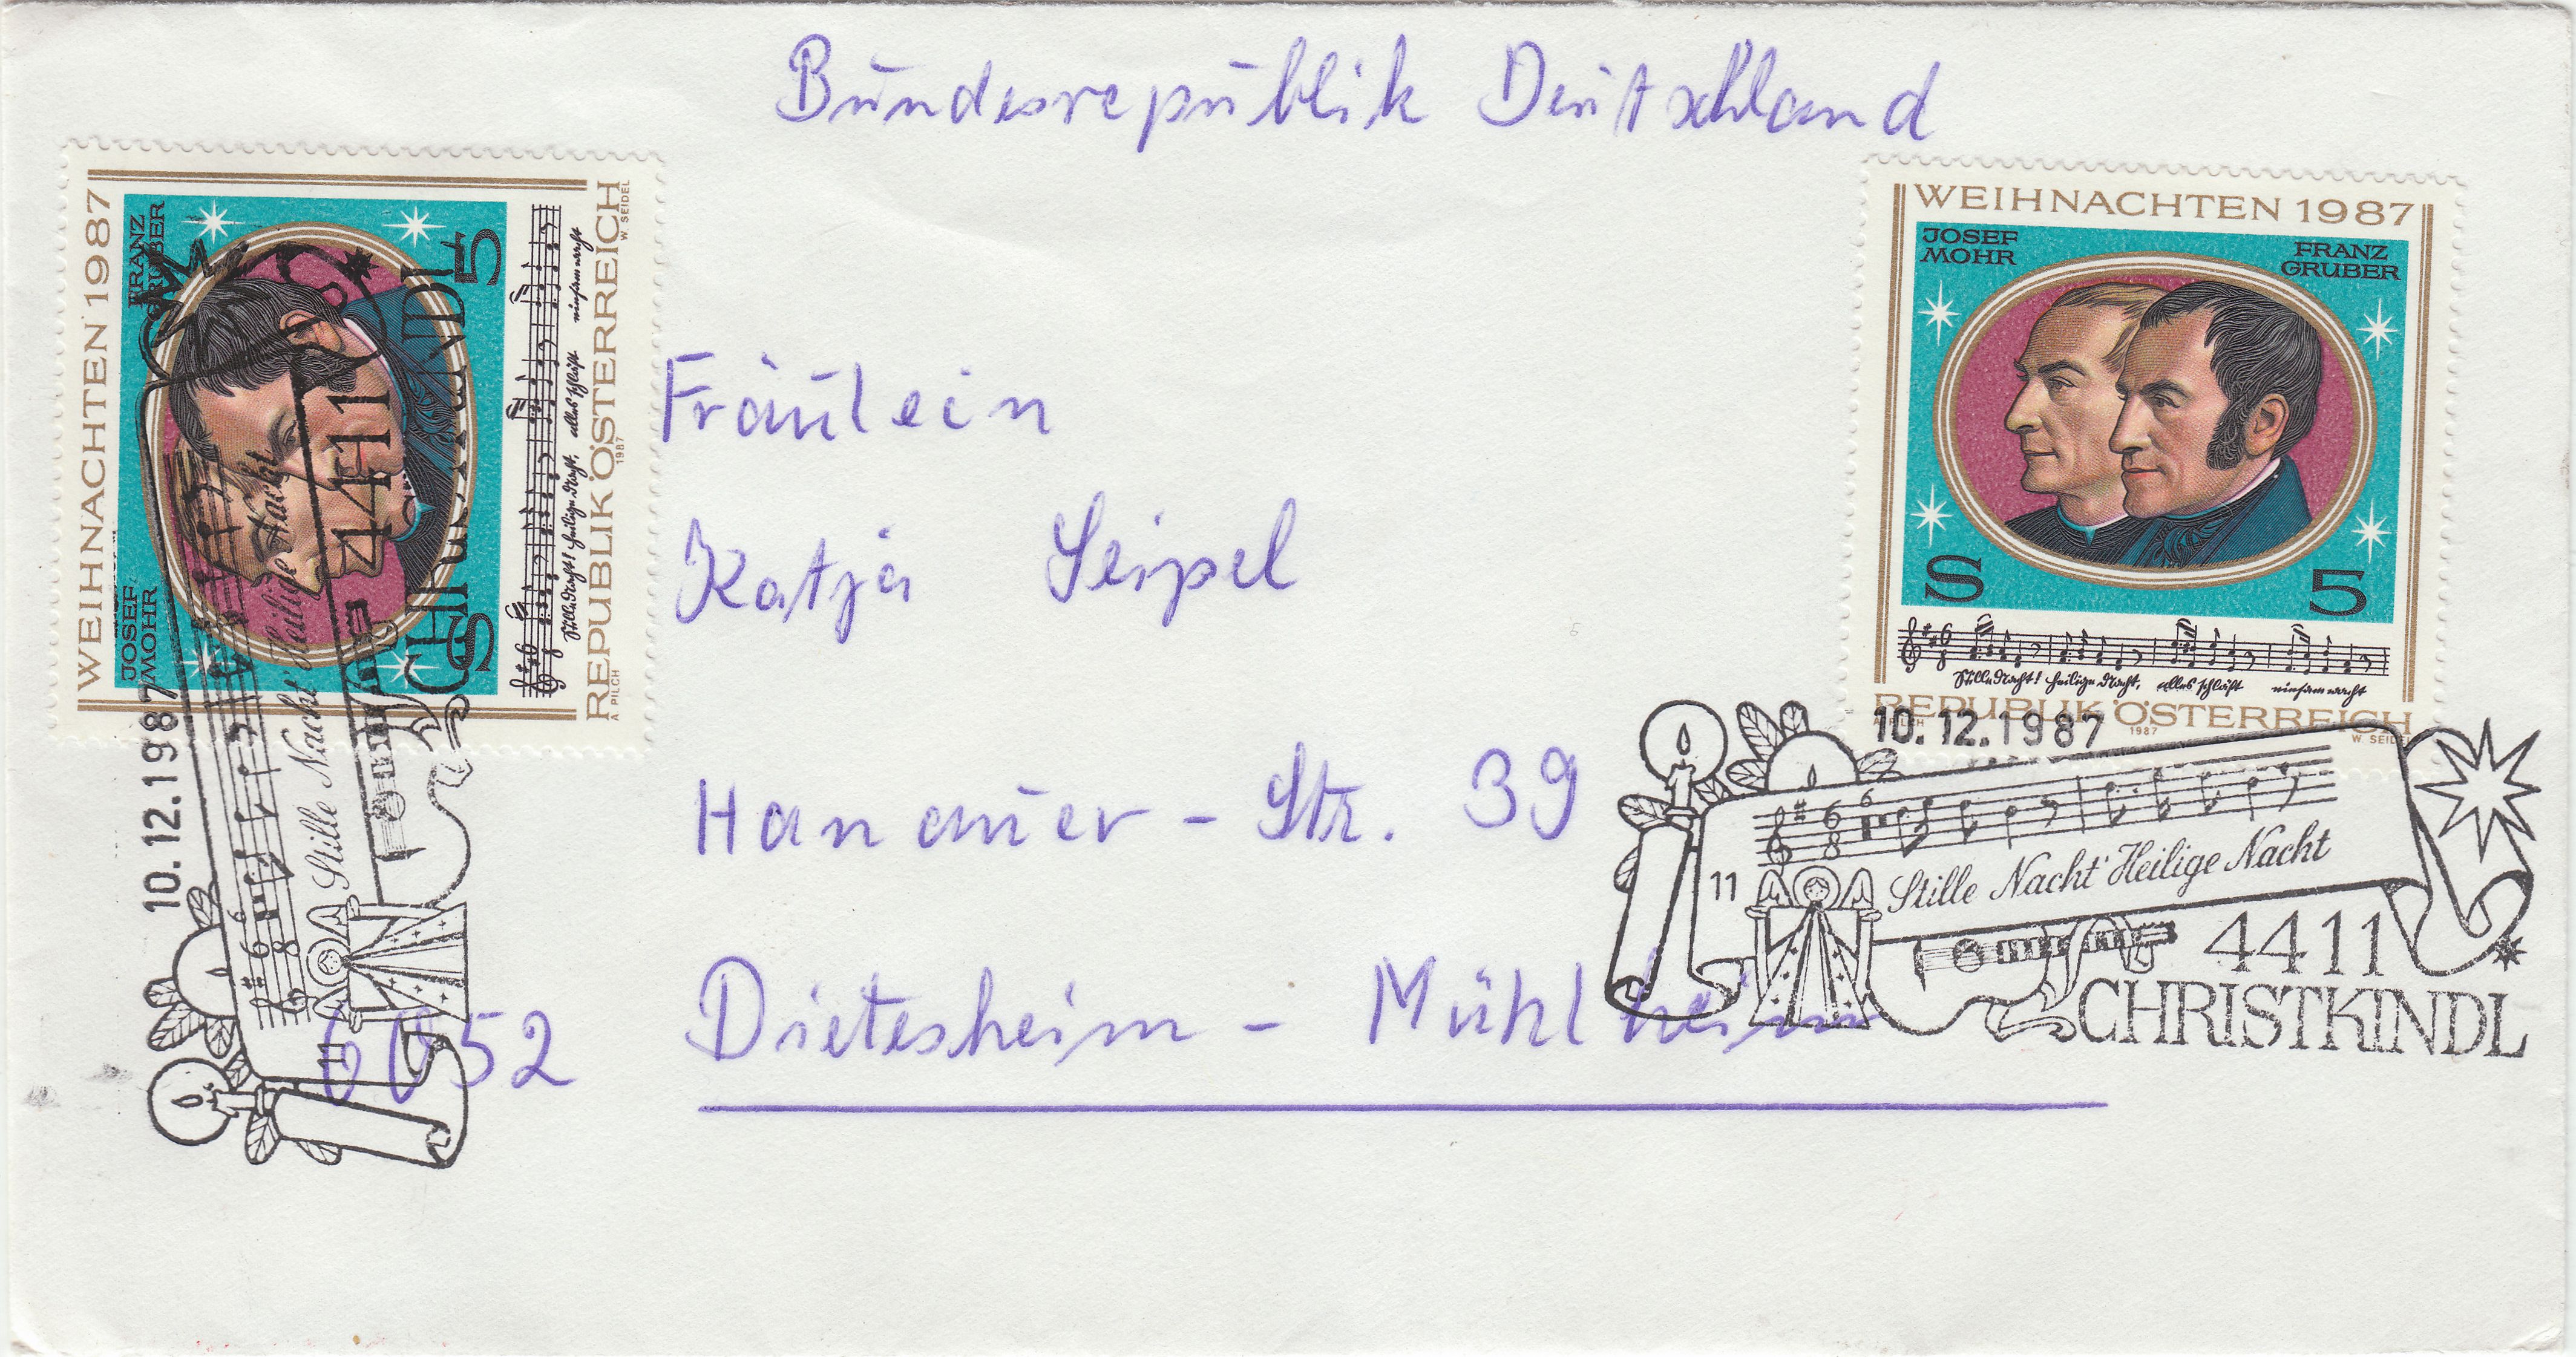 Bundesrepublik Deutschland
WEIHNACHTEN 1987
JOSEF MOHR
FRANZ GRUBER
S 5
Stille Nacht! Heilige Nacht, alles schläft einsam wacht
REPUBLIK ÖSTERREICH
A PILCH 1987 W. SEIDEL
10.12.1987
6 8
Stille Nacht Heilige Nacht
11
4411
CHRISTKINDL
WEIHNACHTEN 1987
JOSEF MOHR
FRANZ GRUBER
S 5
6 8
Stille Nacht! Heilige Nacht, alles schläft einsam wacht
REPUBLIK ÖSTERREICH
A PILCH 1987 W. SEIDEL
10.12.1987
11
6 6 8
Stille Nacht' Heilige Nacht
4411
CHRISTKINDL
Fräulein
Katja Seipel
Hanauer - Str. 39
6052 Dietesheim - Mühlheim